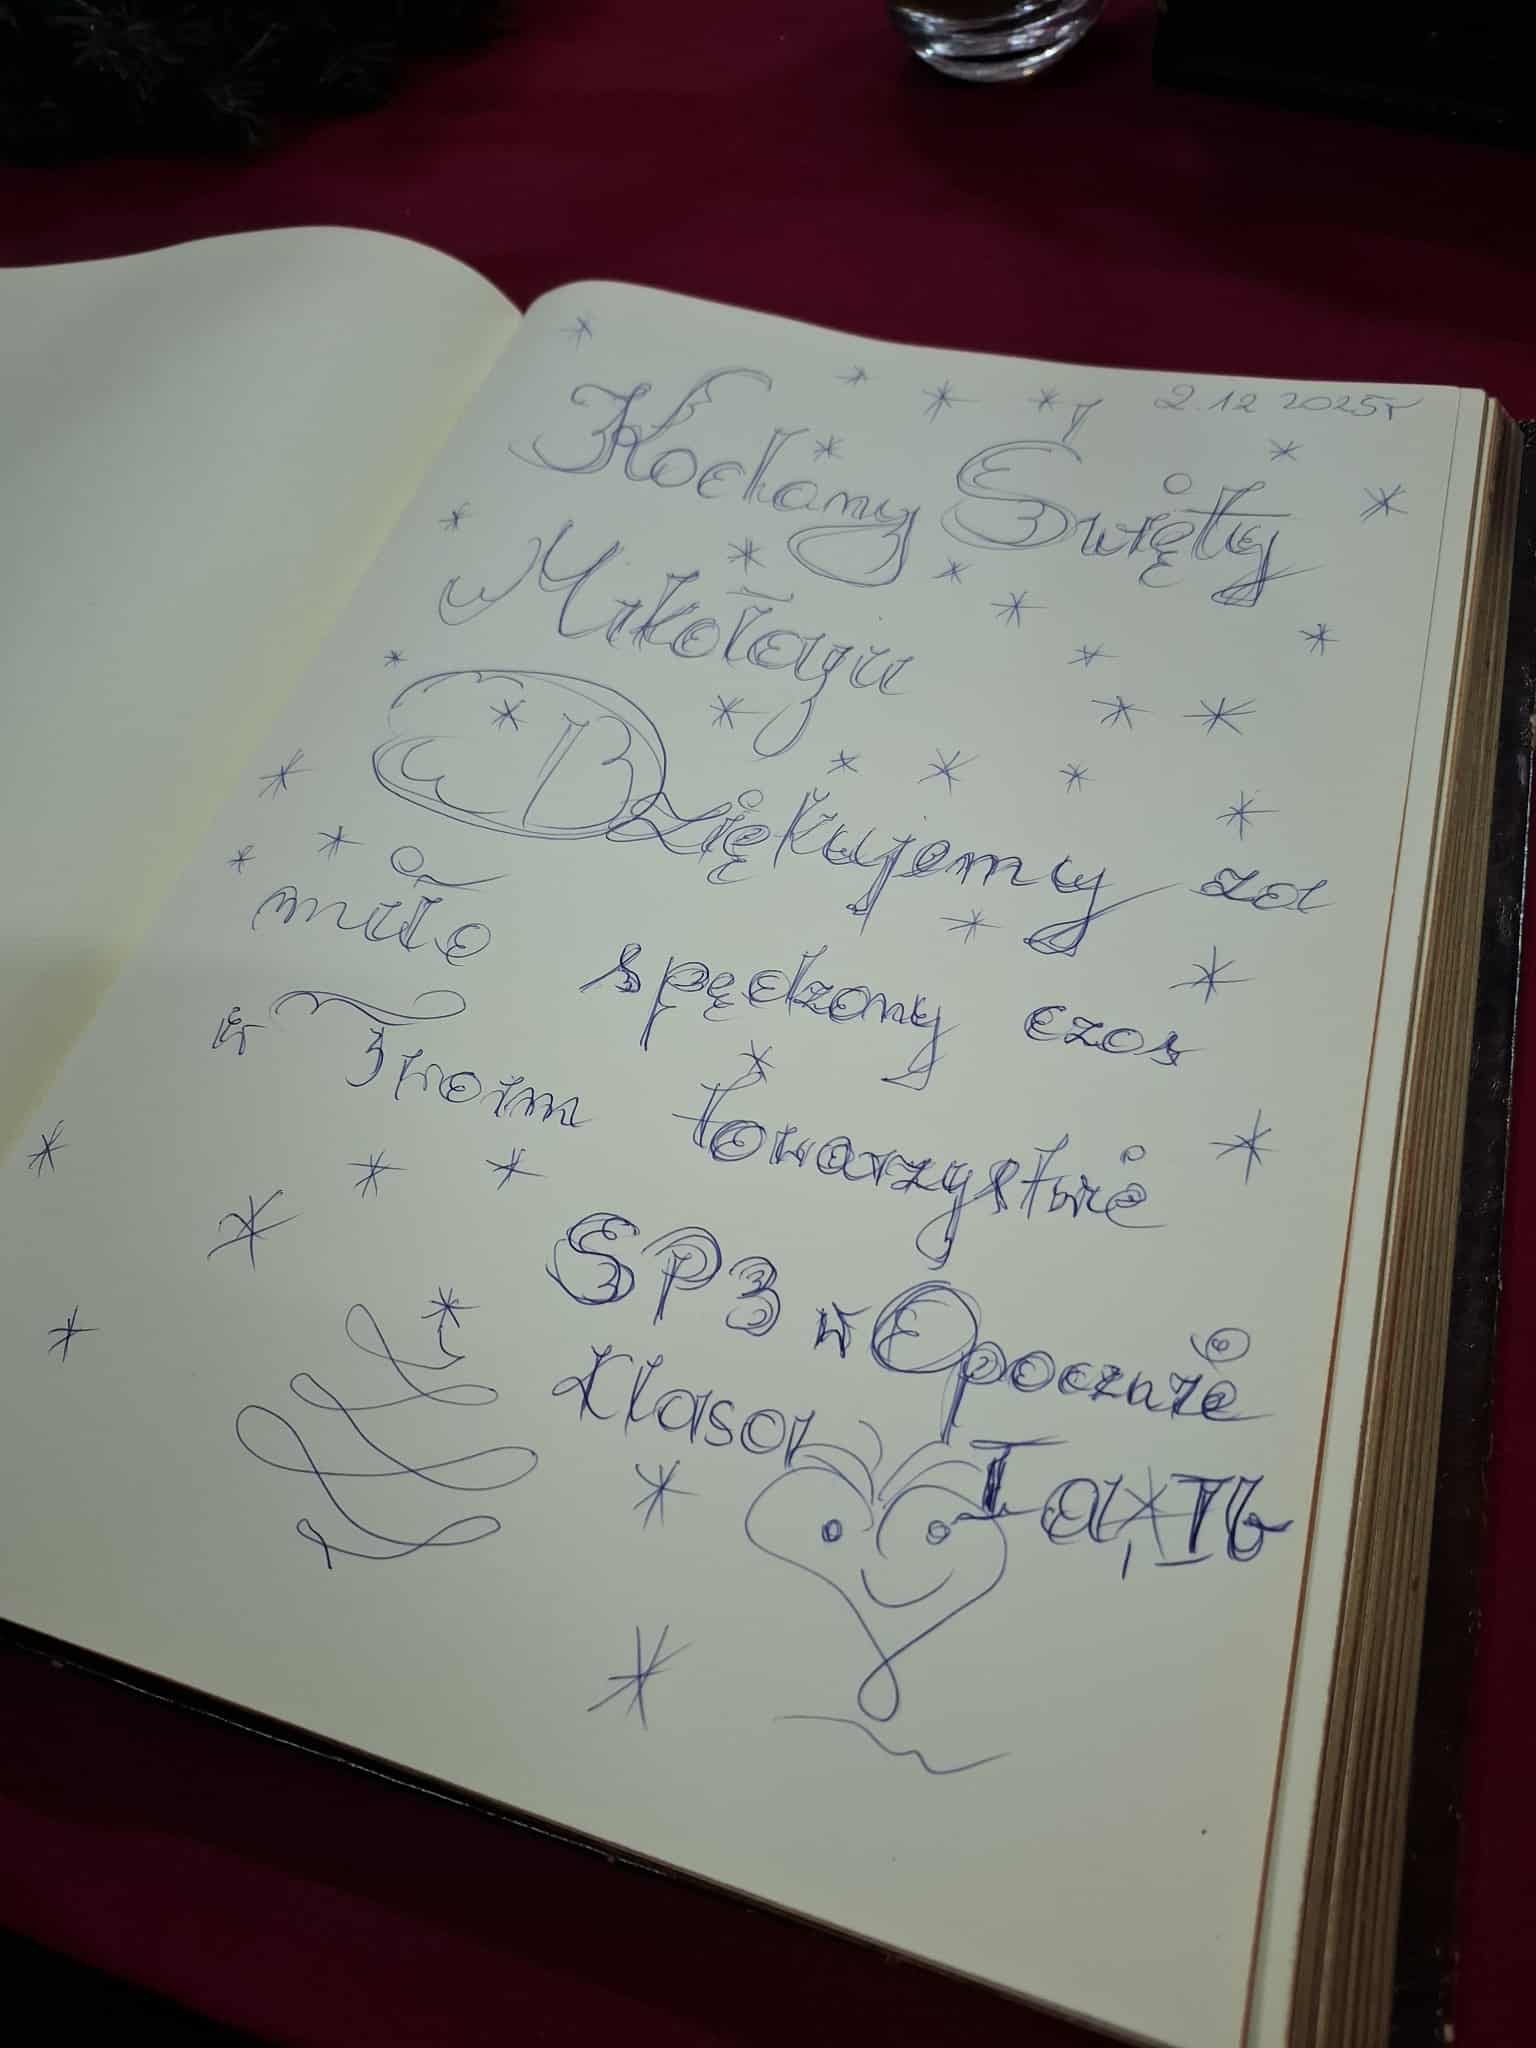 2.12 2025r
Kochany Święty
Mikołaju
Dziękujemy za
miło spędzony czas
w Twoim towarzystwie
SP3 w Opocznie
klasa Ia, Ib